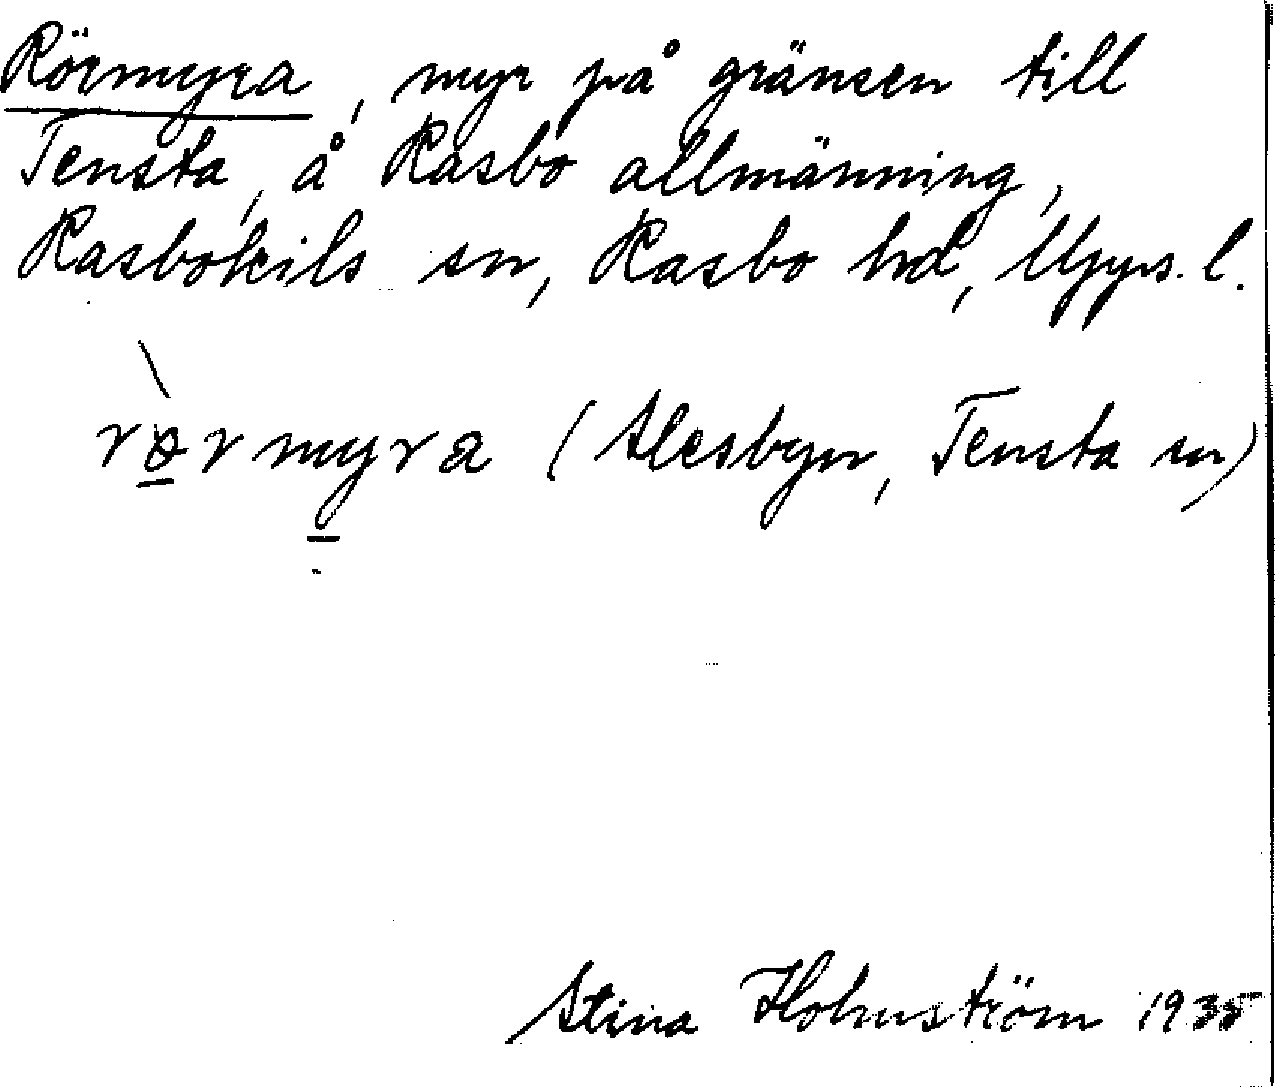 Rörmyra, myr på gränsen till
Tensta, å Rasbo allmänning,
Rasbokils sn, Rasbo hd, Upps. l.
rø̱̀rmy̱ra (Alesbyn, Tensta sn)
Stina Holmström 1935